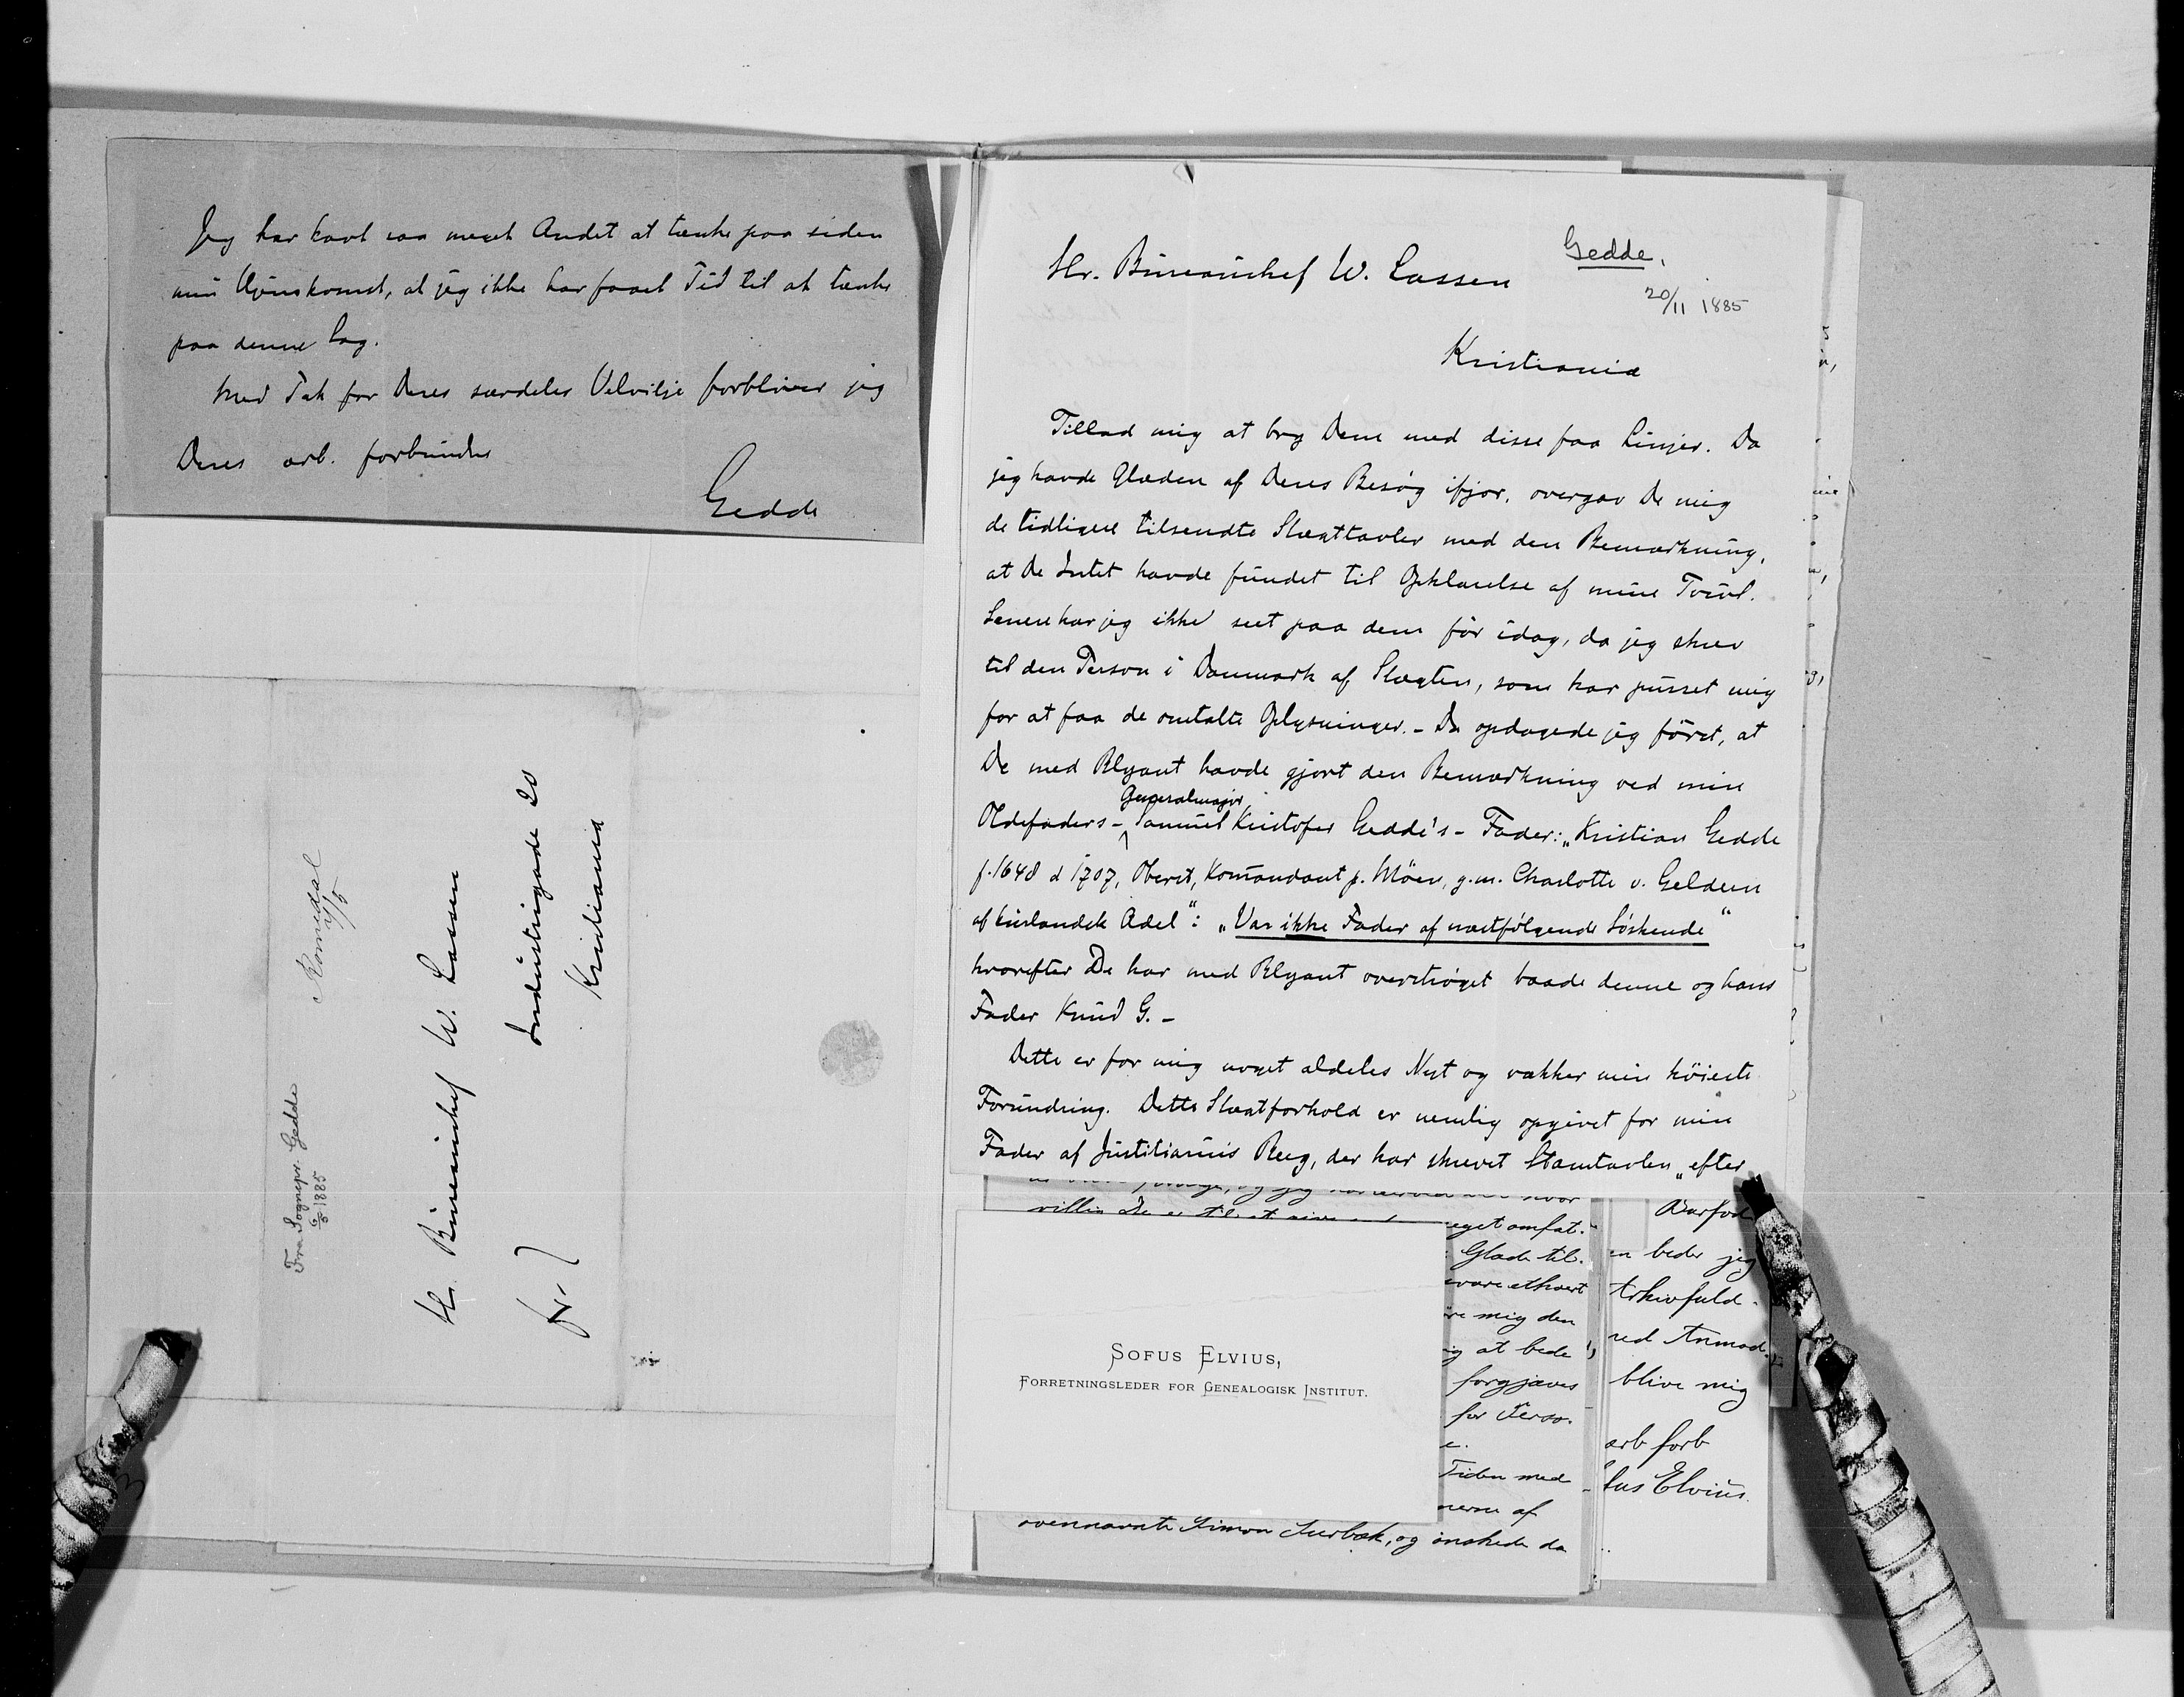 Jeg har havt saa meget Andet at tænke paa siden
min Hjemkomst, at jeg ikke har faaet Tid til at tænke
paa denne Sag.
Med Tak for Deres særdeles Velvilje forbliver jeg
Deres ærb. forbundne
Gedde
Fra Sognepr. Gedde
6/5 1885
Romedal
4/5
Hr. Bureauchef W. Lassen
Industrigade 20
fr.
Kristiania
Gedde.
Hr. Bureauchef W. Lassen
20/11 1885
Kristiania
Tillad mig at bry Dem med disse faa Linjer. Da
jeg havde Glæden af Deres Besøg ifjor, overgav De mig
de tidligere tilsendte Slægttavler med den Bemærkning,
at De Intet havde fundet til Opklarelse af mine Tvivl.
Senere har jeg ikke seet paa dem før idag, da jeg skrev
til den Person i Danmark af Slægten, som har purret mig
for at faa de omtalte Oplysninger. – Da opdagede jeg først, at
De med Blyant havde gjort den Bemærkning ved min
Generalmajor
Oldefaders – Samuel Kristofer Gedde's – Fader: „Kristian Gedde
f. 1648 d 1707, Oberst, Komandant p. Möen, g.m. Charlotte v. Geldern
af kurlandsk Adel“: „Var ikke Fader af næstfølgende Søskende“
hvorefter De har med Blyant overstrøget baade denne og hans
Fader Knud G. –
Dette er for mig noget aldeles Nyt og vækker min høieste
Forundring. Dette Slægtforhold er nemlig opgivet for min
Fader af Justitiarius Berg, der har skrevet Stamtavlen „efter
villig De er til at give
eget omfat-
Glæde til.
være ethvert
re mig den
ig at bede
forgjæves
for Perso-
e.
Tiden med
nerne af
ovennævnte Simon Surbæk, og ønskede da
en beder jeg
Arkivfuld-
ved Anmod-
blive mig
ærb forb
fus Elvius
SOFUS ELVIUS,
FORRETNINGSLEDER FOR GENEALOGISK INSTITUT.